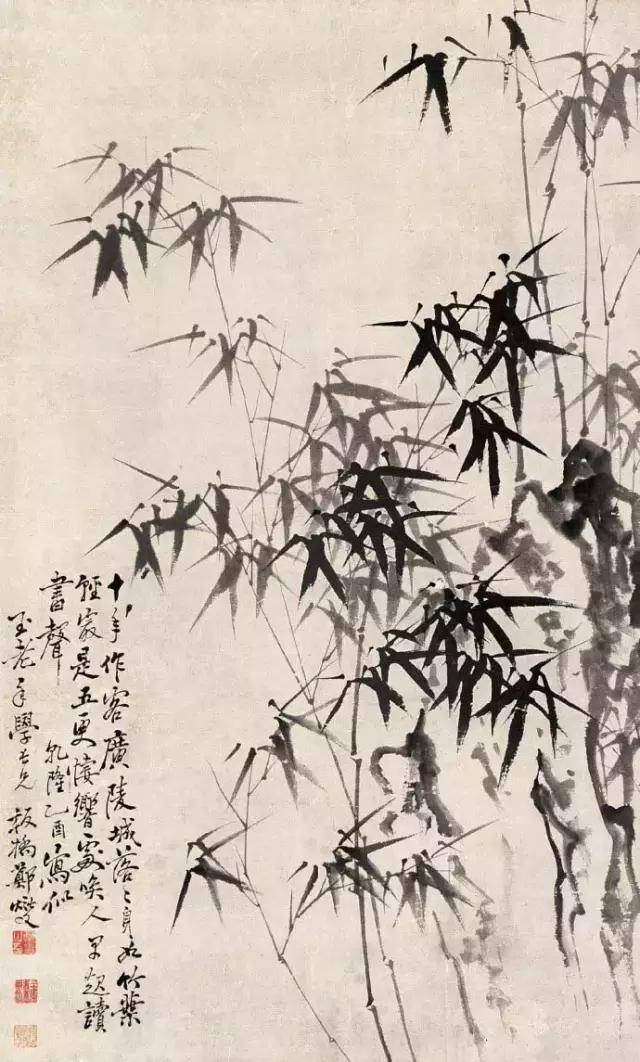 十年作客廣陵城落〻身如竹葉
輕最是五更悽響處喚人早起讀
書聲
乾隆乙酉寫似
玉老年學長兄 板橋鄭燮